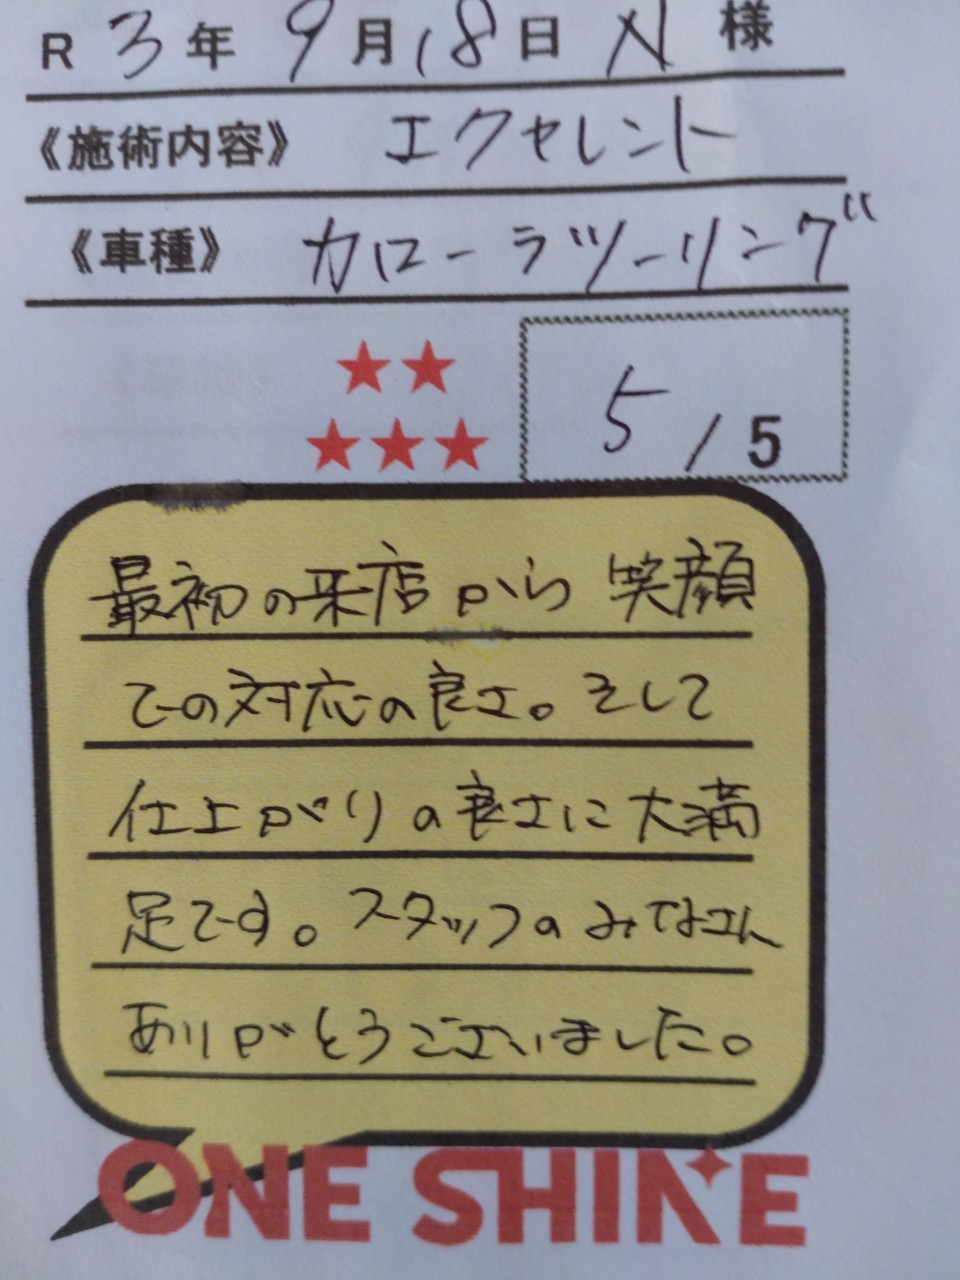 R 3年 9月18日 N 様
《施術内容》 エクセレント
《車種》 カローラツーリング
★★
★★★
5/5
最初の来店から 笑顔
での対応の良さ。そして
仕上がりの良さに大満
足です。スタッフのみなさん
ありがとうございました。
ONE SHINE